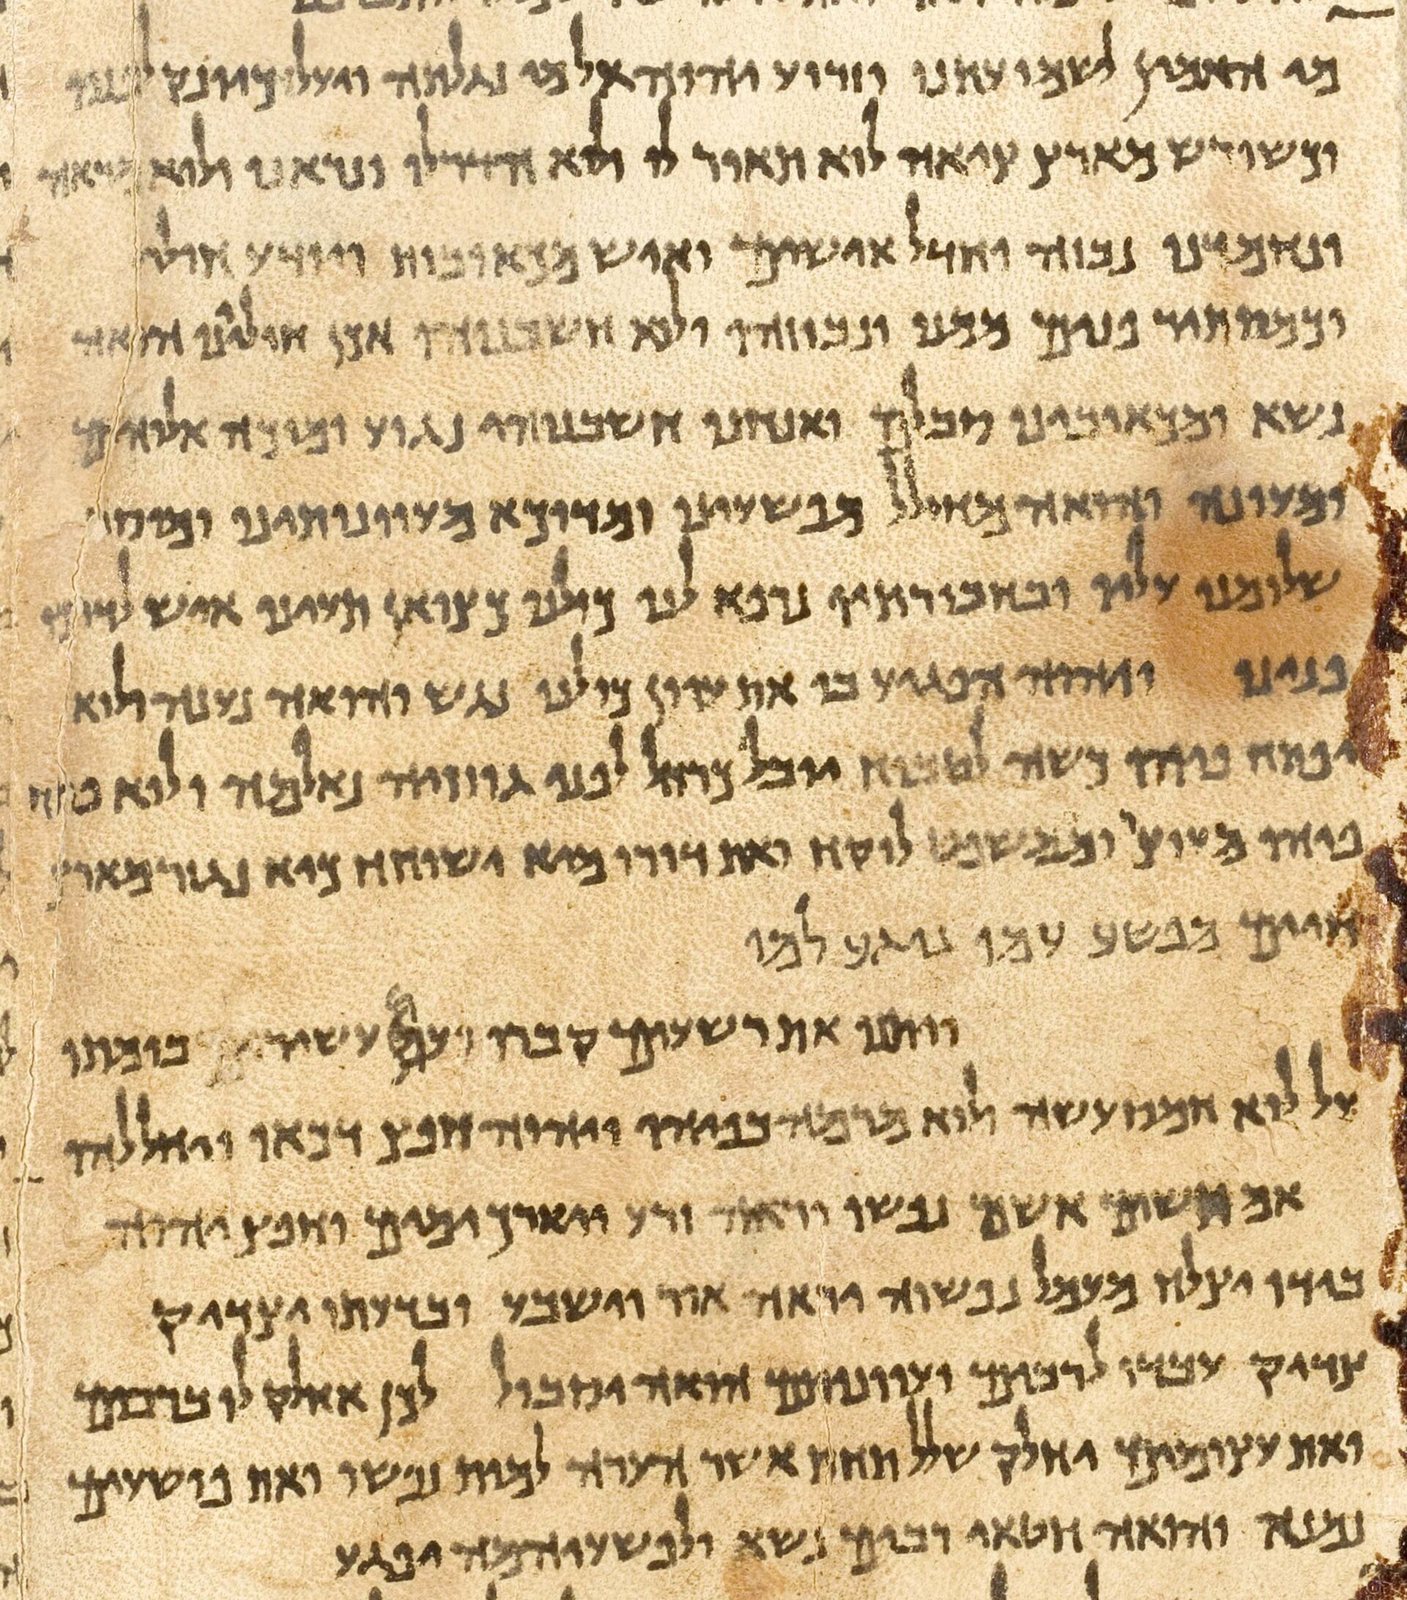 מי האמין לשמועתנו וזרוע יהוה אל מי נגלתה ויעל כיונק לפניו
וכשורש מארץ ציאה לוא תאור לו ולא הדר לו ונראנו ולוא מראה
ונחמדנו נבוזה וחדל אישים ואיש מכאובות ויודע חולי
וכמסתיר פנים ממנו ונבוזהו ולא חשבנוהו אכן חוליינו הואה
נשא ומכאובינו סבלם ואנחנו חשבנוהו נגוע ומוכה אלוהים
ומעונה והואה מחולל מפשעינו ומדוכא מעוונותינו ומוסר
שלומנו עליו ובחבורתיו נרפא לנו כולנו כצואן תעינו איש לדרכו
פנינו ויהוה הפגיע בו את עוון כולנו נגש והואה נענה ולוא
יפתח פיהו כשה לטבוח יובל כרחל לפני גוזזיה נאלמה ולוא פתח
פיהו מעוצר וממשפט לוקח ואת דורו מיא ישוחח כיא נגזר מארץ
חיים מפשע עמו נוגע למו
ויתנו את רשעים קברו ועם עשיר בומתו
על לוא חמס עשה ולוא מרמה בפיהו ויהוה חפץ דכאו ויחללהו
אם תשים אשם נפשו יראה זרע ויארך ימים וחפץ יהוה
בידו יצלח מעמל נפשוה יראה אור וישבע ובדעתו יצדיק
צדיק עבדו לרבים ועוונותם הואה יסבול לכן אחלק לו ברבים
ואת עצומים יחלק שלל תחת אשר הערה למות נפשו ואת פושעים
נמנה והואה חטאי רבים נשא ולפשעיהמה יפגע